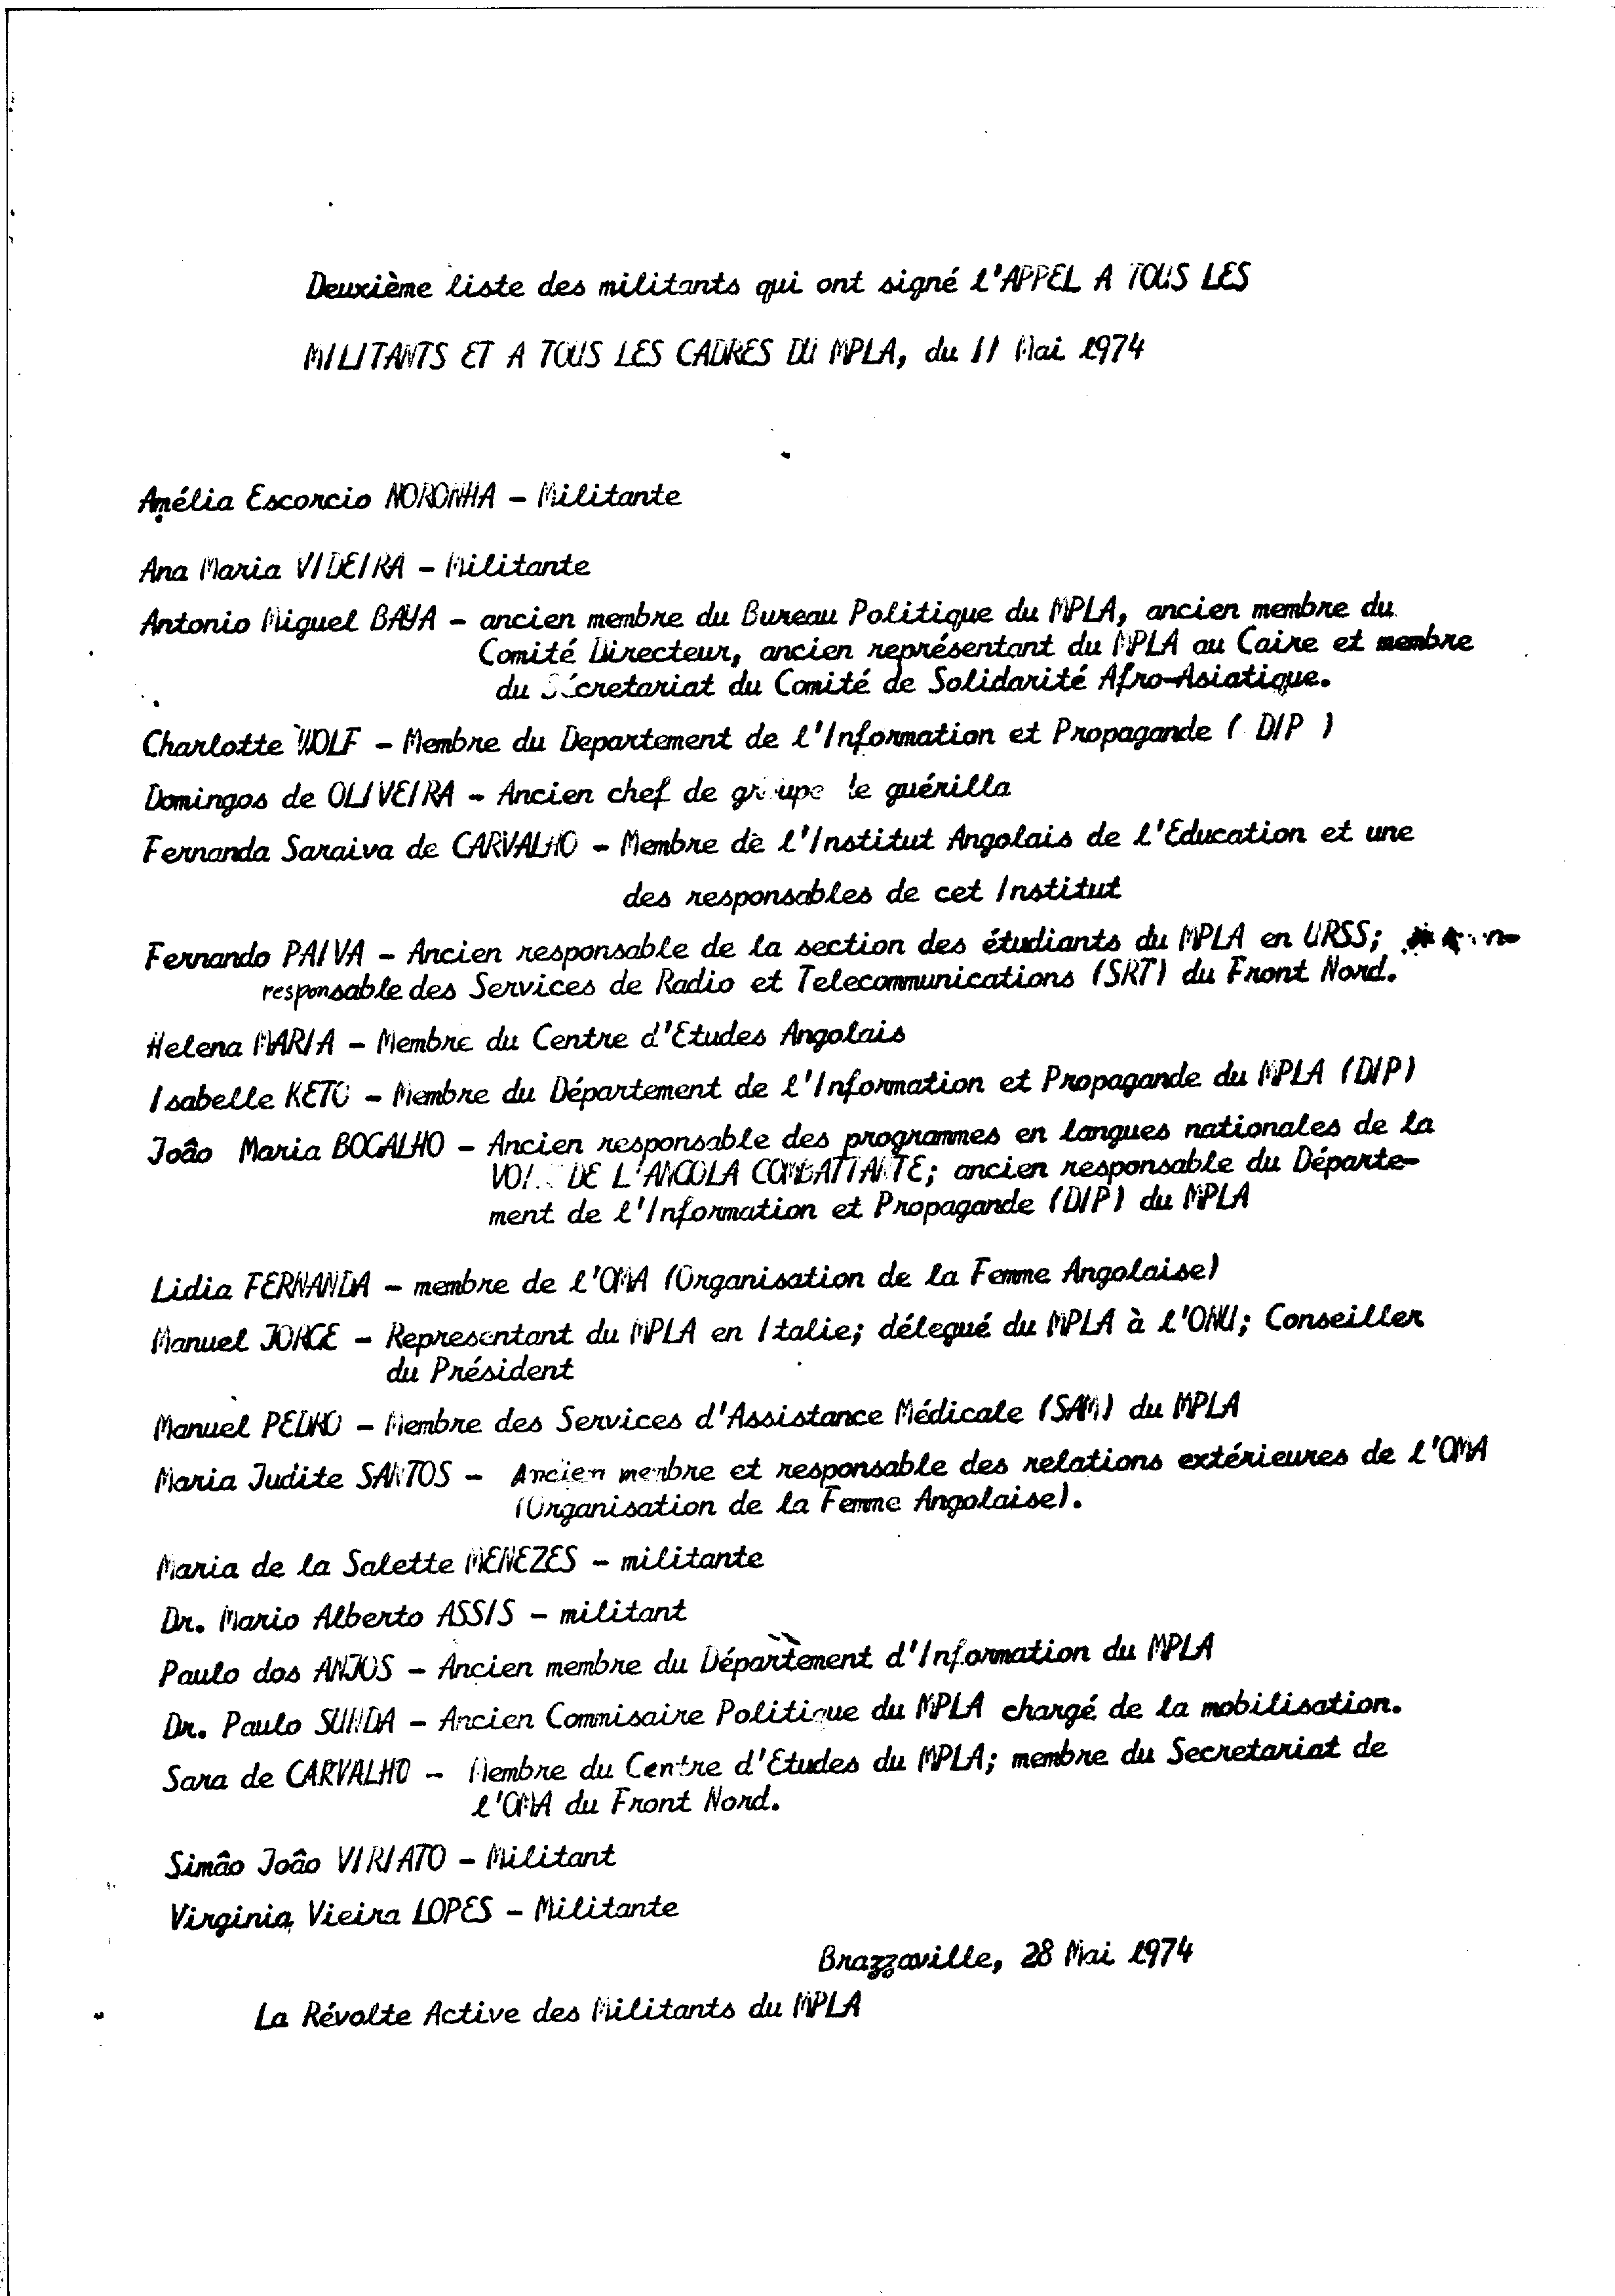 Deuxième liste des militants qui ont signé l'APPEL A TOUS LES
MILITANTS ET A TOUS LES CADRES DU MPLA, du 11 Mai 1974
Amélia Escorcio NORONHA - Militante
Ana Maria VIDEIRA - Militante
Antonio Miguel BAYA - ancien membre du Bureau Politique du MPLA, ancien membre du
Comité Directeur, ancien représentant du MPLA au Caire et membre
du Sécretariat du Comité de Solidarité Afro-Asiatique.
Charlotte WOLF - Membre du Departement de l'Information et Propagande ( DIP )
Domingos de OLIVEIRA - Ancien chef de groupe de guérilla
Fernanda Saraiva de CARVALHO - Membre de l'Institut Angolais de l'Education et une
des responsables de cet Institut
Fernando PAIVA - Ancien responsable de la section des étudiants du MPLA en URSS;
responsable des Services de Radio et Telecommunications (SRT) du Front Nord.
Helena MARIA - Membre du Centre d'Etudes Angolais
Isabelle KETO - Membre du Département de l'Information et Propagande du MPLA (DIP)
João Maria BOGALHO - Ancien responsable des programmes en langues nationales de la
DE L'ANGOLA COMBATTANTE; ancien responsable du Départe-
ment de l'Information et Propagande (DIP) du MPLA
Lidia FERNANDA - membre de l'OMA (Organisation de la Femme Angolaise)
Manuel JORGE - Representant du MPLA en Italie; délegué du MPLA à l'ONU; Conseiller
du Président
Manuel PEDRO - Membre des Services d'Assistance Médicale (SAM) du MPLA
Maria Judite SANTOS - Ancien membre et responsable des relations extérieures de l'OMA
(Organisation de la Femme Angolaise).
Maria de la Salette MENEZES - militante
Dr. Mario Alberto ASSIS - militant
Paulo dos ANJOS - Ancien membre du Département d'Information du MPLA
Dr. Paulo SUNDA - Ancien Commisaire Politique du MPLA chargé de la mobilisation.
Sara de CARVALHO - Membre du Centre d'Etudes du MPLA; membre du Secretariat de
l'OMA du Front Nord.
Simão João VIRIATO - Militant
Virginia Vieira LOPES - Militante
Brazzaville, 28 Mai 1974
La Révolte Active des Militants du MPLA